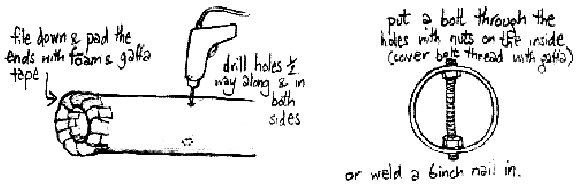 file down & pad the
ends with foam & gaffa
tape
drill holes ½
way along & in
both
sides
put a bolt through the
holes with nuts on the inside
(cover bolt thread with gaffa)
or weld a 6inch nail in.